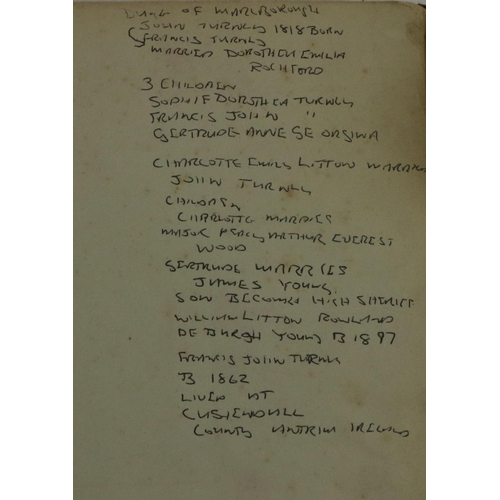 DUKE OF MARLBOROUGH
JOHN TURNLY 1818 BORN
FRANCIS TURNLY
MARRIED DOROTHEA EMILIA
ROCHFORD
3 CHILDREN
SOPHIE DOROTHEA TURNLY
FRANCIS JOHN "
GERTRUDE ANNE GEORGINA
CHARLOTTE EMILY LITTON MARRIES
JOHN TURNLY
CHILDREN
CHARLOTTE MARRIES
MAJOR PERCY ARTHUR EVEREST
WOOD
GERTRUDE MARRIES
JAMES YOUNG.
SON BECOMES HIGH SHERIFF
WILLIAM LITTON ROWLAND
DE BURGH YOUNG B 1897
FRANCIS JOHN TURNLY
B 1862
LIVED AT
CUSHENDALL
COUNTY ANTRIM IRELAND